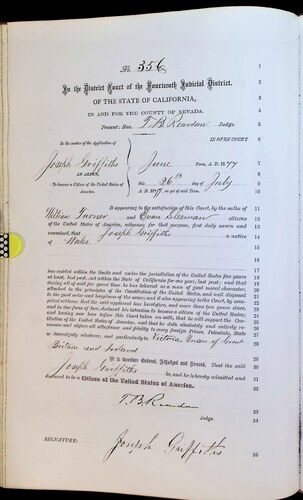 No. 356
In the District Court of the Fourteenth Judicial District.
OF THE STATE OF CALIFORNIA,
IN AND FOR THE COUNTY OF NEVADA.
Present: Hon. T. B. Reardan Judge.
In the matter of the Application of
IN OPEN COURT
Joseph Griffiths
June Term, A. D. 1877
AN ALIEN,
To become a Citizen of the United States of America.
this 26th day of July
A. D. 1877, an
It appearing to the satisfaction of this Court, by the oaths of
William Turner and Evan Sleeman citizens
of the United States of America, witnesses for that purpose, first duly sworn and
examined, that Joseph Griffiths a native
of Wales
has resided within the limits and under the jurisdiction of the United States five years
at least, last past, and within the State of California for one year, last past; and that
during all of said five years' time he has behaved as a man of good moral character,
attached to the principles of the Constitution of the United States, and well disposed
to the good order and happiness of the same; and it also appearing to the Court, by
and in due form of law, declared his intention to become a citizen of the United States;
and having now here before this Court taken an oath, that he will support the Con-
stitution of the United States of America, and that he doth absolutely and entirely re-
nounce and abjure all allegiance and fidelity to every foreign Prince, Potentate, State
or Sovereignty whatever, and particularly to Victoria Queen of Great
Britain and Ireland
It is therefore Ordered, Adjudged and Decreed, That the said
Joseph Griffiths be, and he is hereby admitted and
declared to be a Citizen of the United States of America.
T. B. Reardan
Judge.
SIGNATURE: Joseph Griffiths